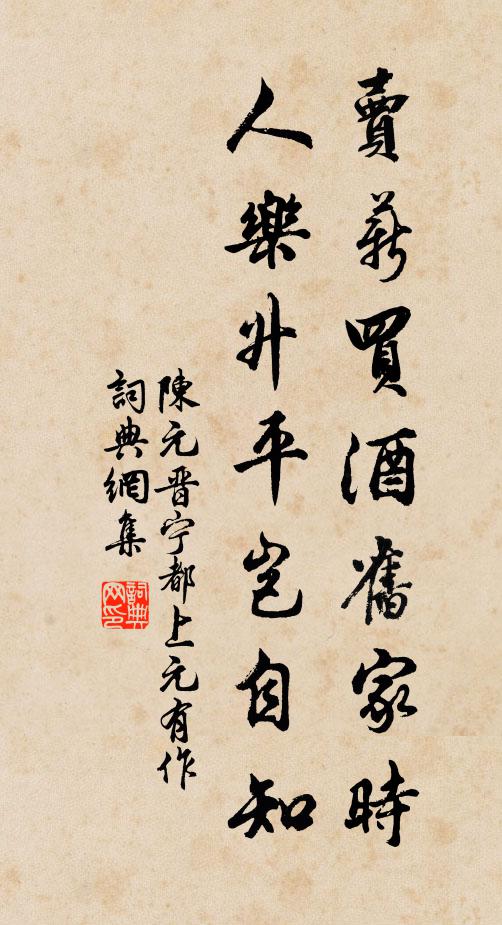 賣薪買酒舊家時
人樂升平豈自知
陳元晋宁都上元有作
詞典網集
詞典网印